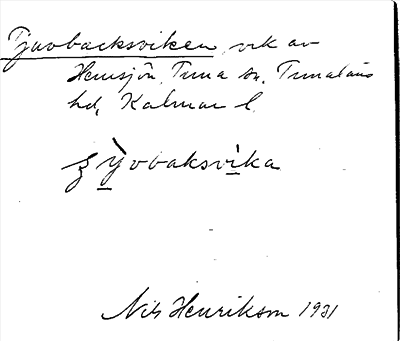 Tjuvbacksviken, vik av
Hemsjön, Tuna sn, Tunaläns
hd, Kalmar l.
Nils Henrikson 1931